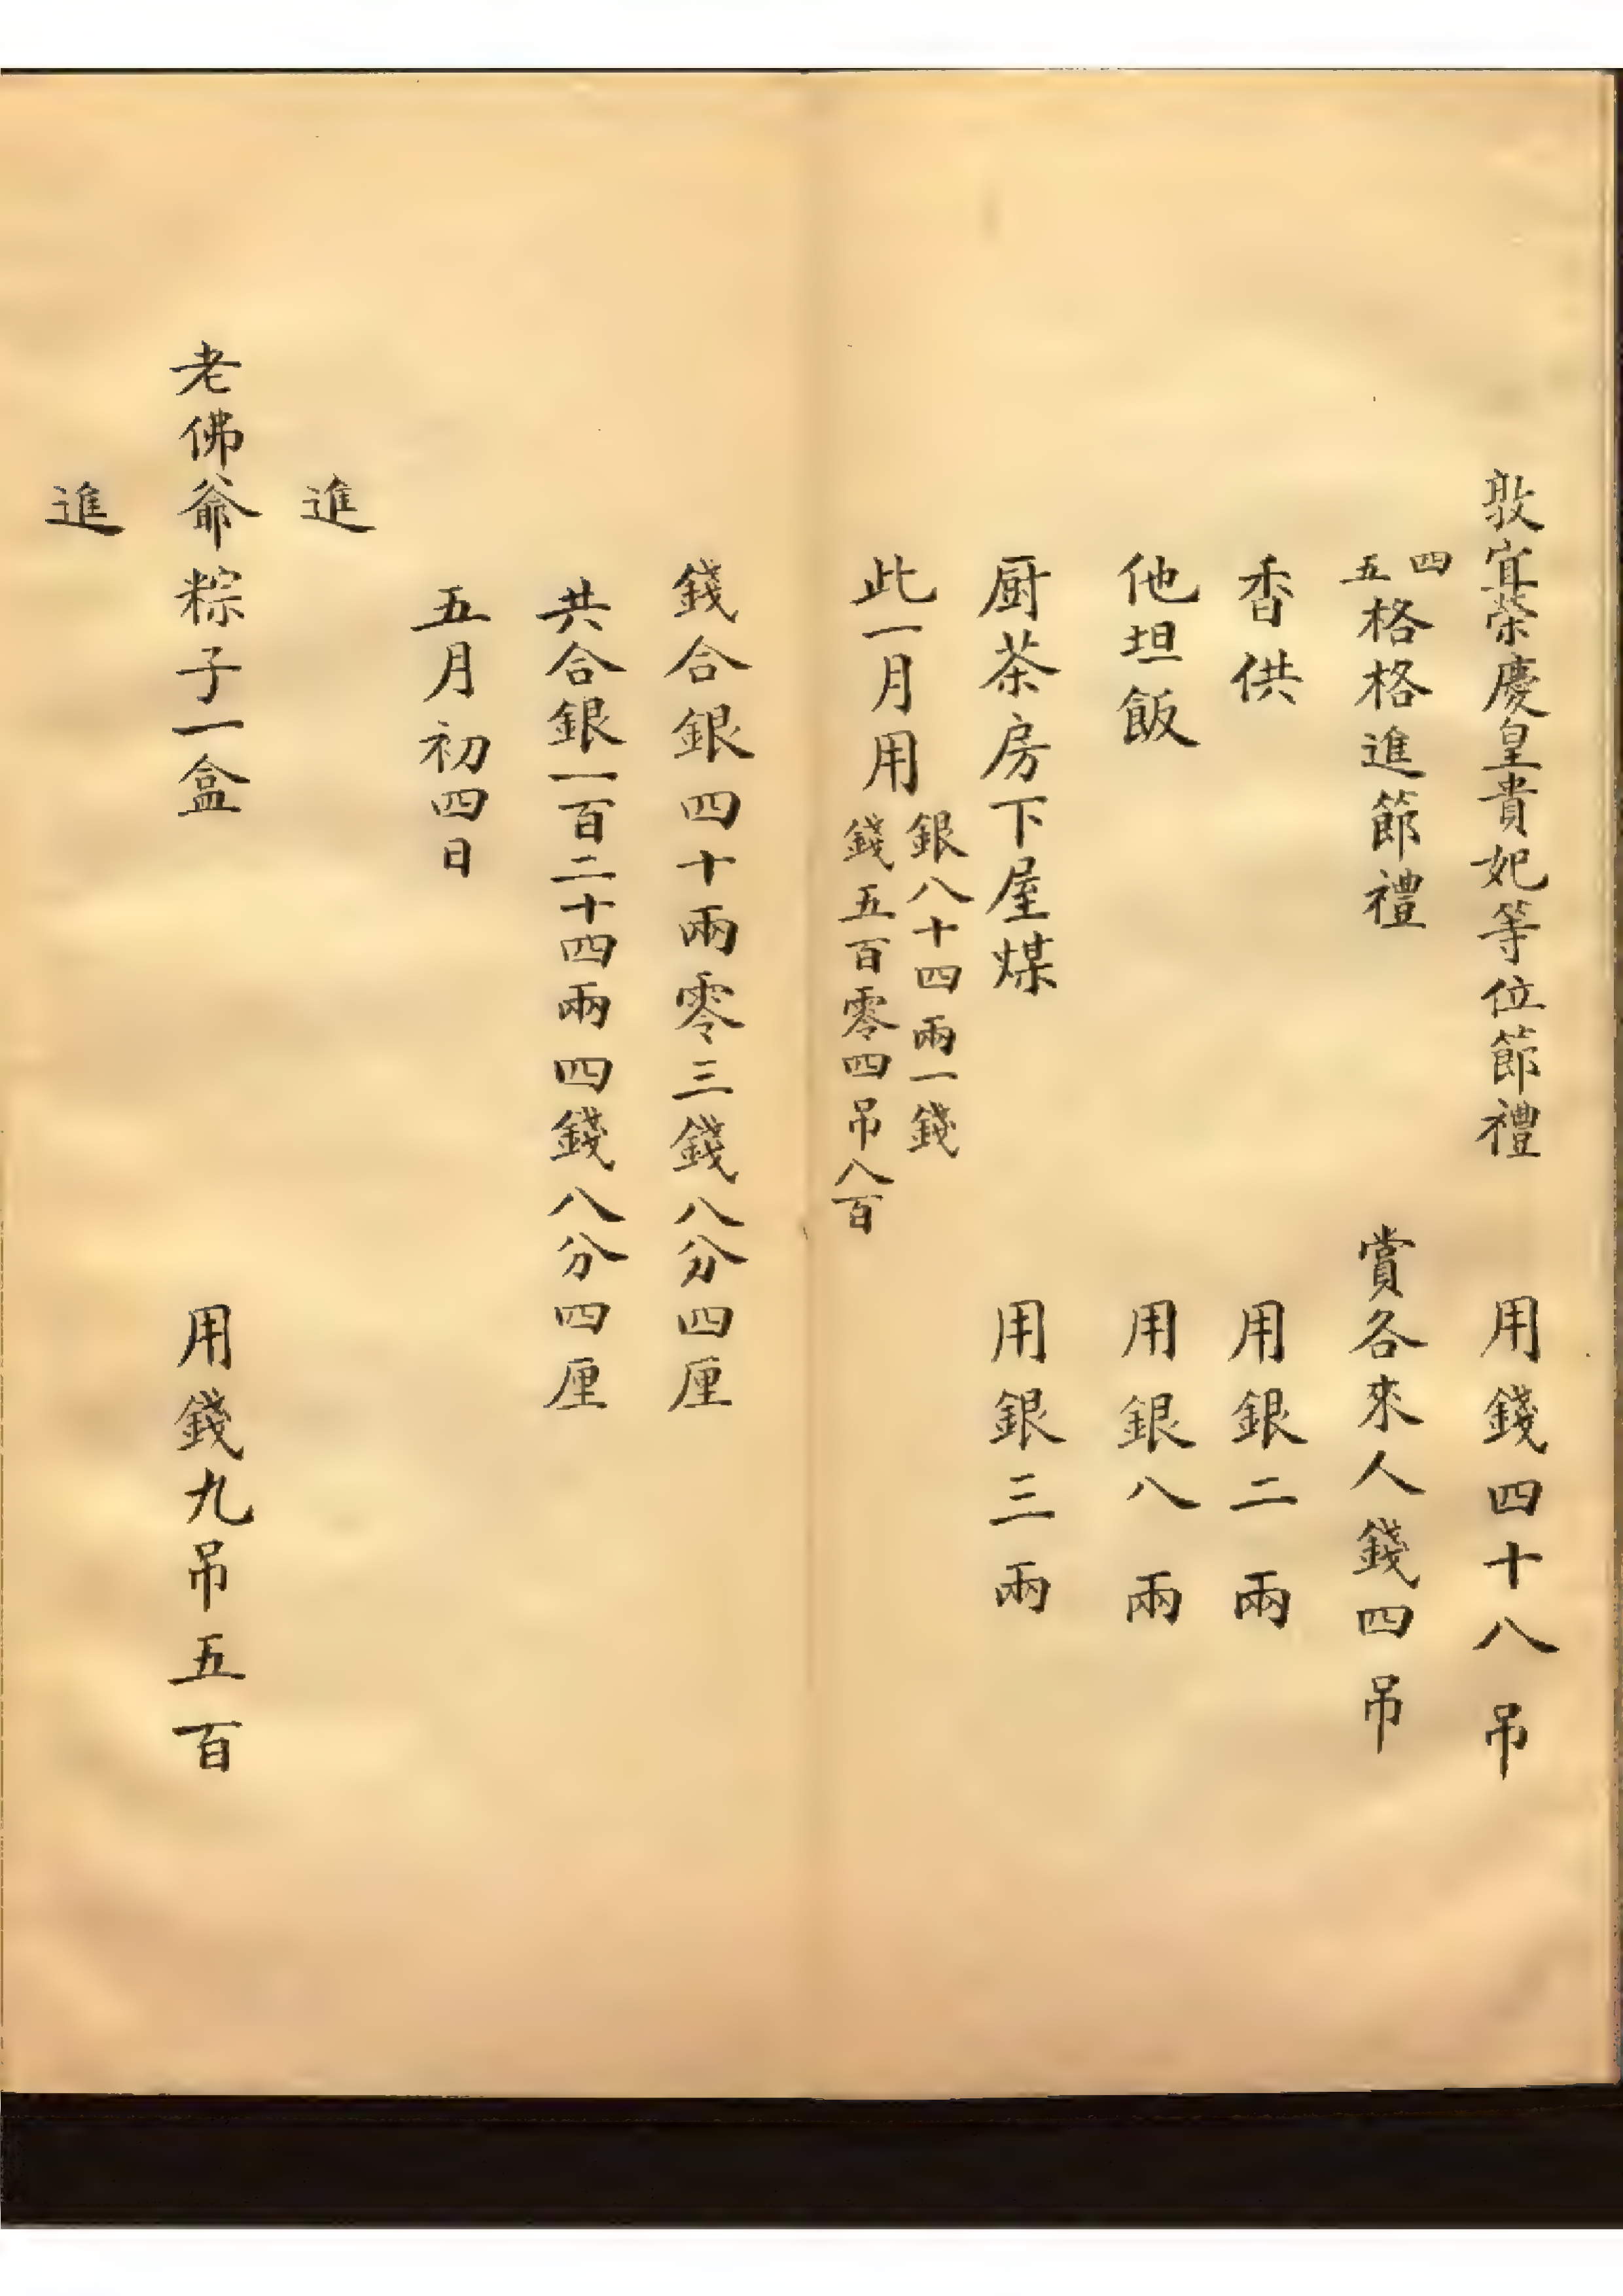 敦宜榮慶皇貴妃等位節禮 用錢四十八吊
四五格格進節禮 賞各來人錢四吊
香供 用銀二兩
他坦飯 用銀八兩
厨茶房下屋煤 用銀三兩
此一月用 銀八十四兩一錢 錢五百零四吊八百
錢合銀四十兩零三錢八分四厘
共合銀一百二十四兩四錢八分四厘
五月初四日
進
老佛爺粽子一盒 用錢九吊五百
進